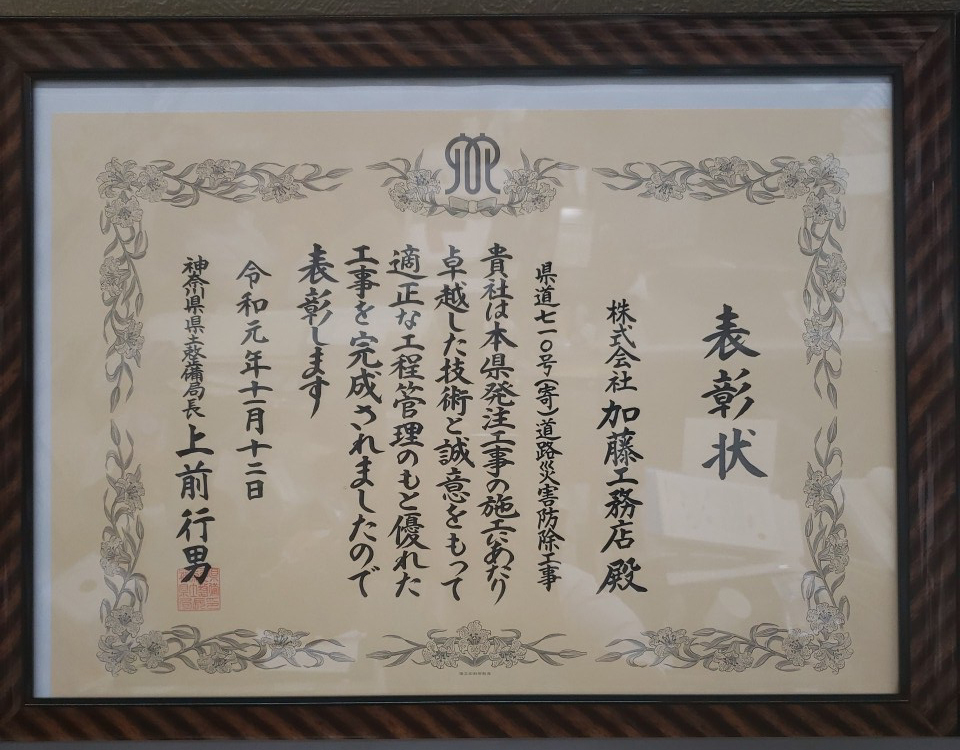 表彰状
株式会社 加藤工務店 殿
県道七一〇号(寄)道路災害防除工事
貴社は本県発注工事の施工にあたり
卓越した技術と誠意をもって
適正な工程管理のもと優れた
工事を完成されましたので
表彰します
令和元年十一月十二日
神奈川県県土整備局長 上前行男